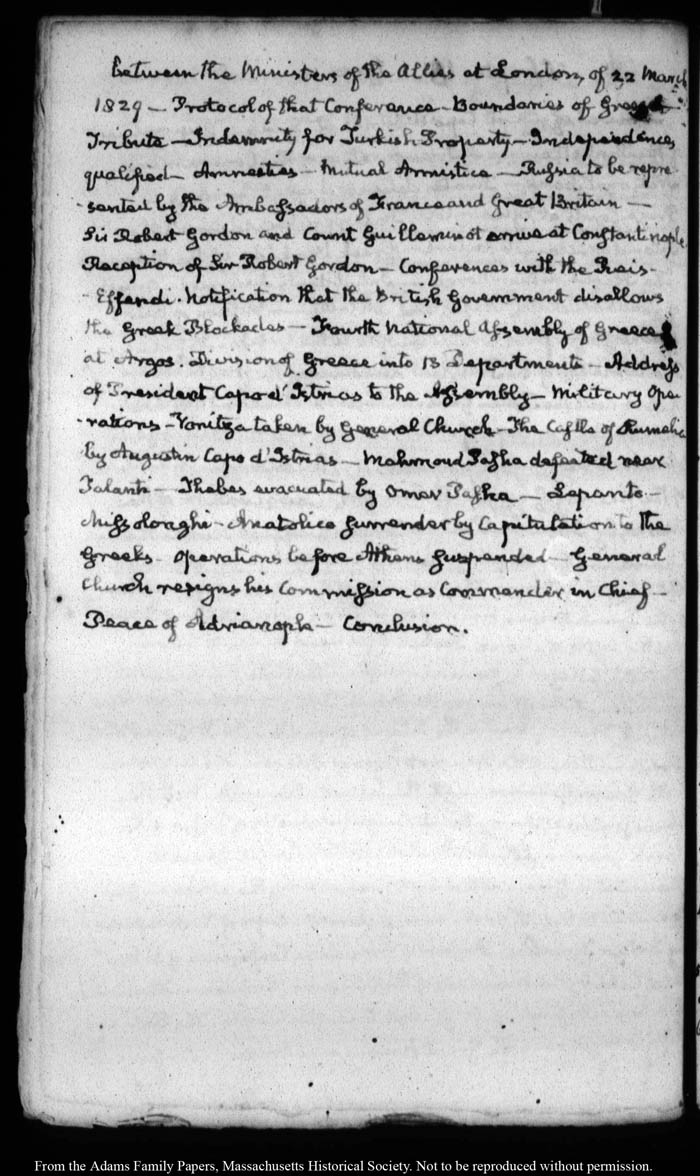 between the Ministers of the Allies at London, of 22 March
1829 — Protocol of that Conference — Boundaries of Greece
Tribute — Indemnity for Turkish Property — Independence,
qualified — Amnesties — Mutual Armistice — Russia to be repre
-sented by the Ambassadors of France and Great Britain —
Sir Robert Gordon and Count Guilleminot arrive at Constantinople
Reception of Sir Robert Gordon — Conferences with the Reis-
-Effendi. Notification that the British Government disallows
the Greek Blockades — Fourth National Assembly of Greece
at Argos. Division of Greece into 13 Departments — Address
of President Capo d'Istrias to the Assembly — Military Ope
-rations — Vonitza taken by General Church — The Castle of Rumelia
by Augustin Capo d'Istrias — Mahmoud Pasha defeated near
Talanti — Thebes evacuated by Omer Pasha — Lepanto —
Missolonghi — Anatolico surrender by Capitulation to the
Greeks — Operations before Athens suspended — General
Church resigns his Commission as Commander in Chief —
Peace of Adrianople — Conclusion.
From the Adams Family Papers, Massachusetts Historical Society. Not to be reproduced without permission.